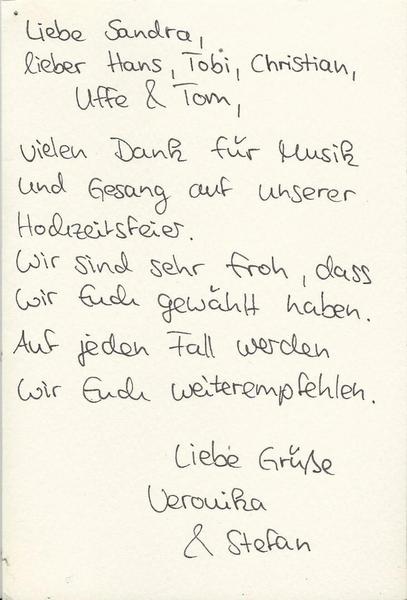 Liebe Sandra,
lieber Hans, Tobi, Christian,
Uffe & Tom,
vielen Dank für Musik
und Gesang auf unserer
Hochzeitsfeier.
Wir sind sehr froh, dass
wir Euch gewählt haben.
Auf jeden Fall werden
wir Euch weiterempfehlen.
Liebe Grüße
Veronika
& Stefan